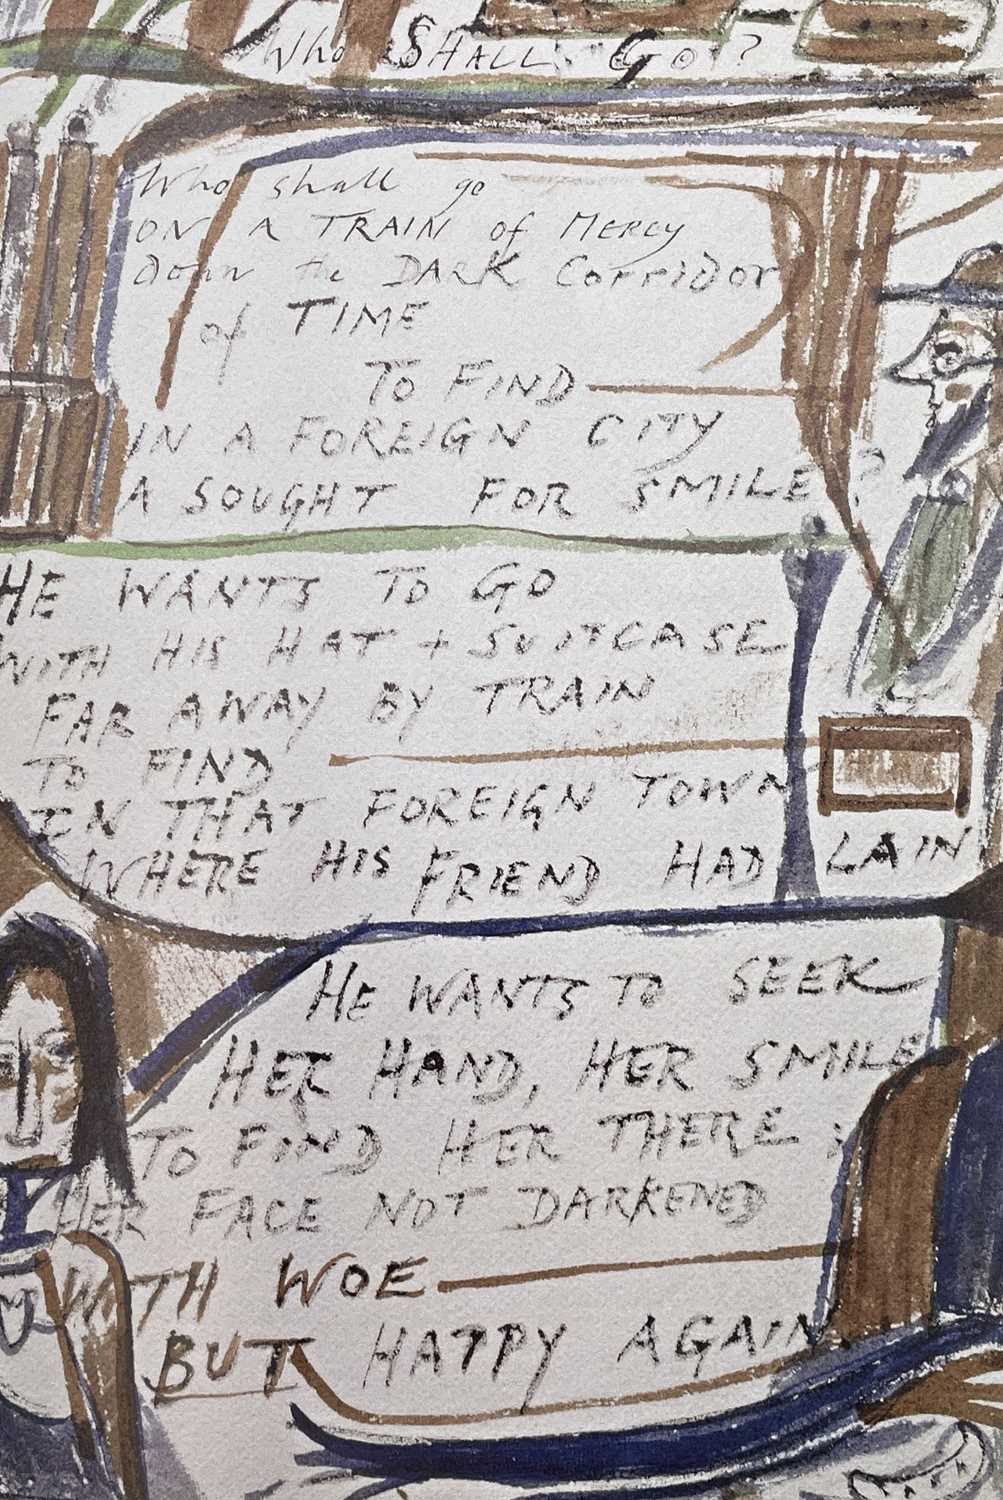 Who SHALL GO?
Who shall go
ON A TRAIN of MERCY
down the DARK Corridor
of TIME
TO FIND
IN A FOREIGN CITY
A SOUGHT FOR SMILE?
HE WANTS TO GO
WITH HIS HAT + SUITCASE
FAR AWAY BY TRAIN
TO FIND
IN THAT FOREIGN TOWN
WHERE HIS FRIEND HAD LAIN
HE WANTS TO SEEK
HER HAND, HER SMILE
TO FIND HER THERE;
HER FACE NOT DARKENED
WITH WOE
BUT HAPPY AGAIN.